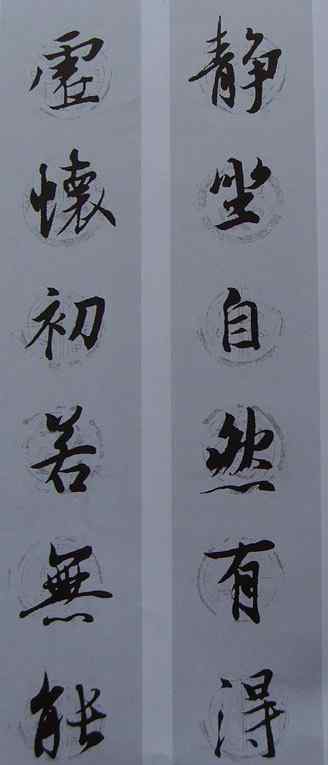 静坐自然有得
虚懷初若無能